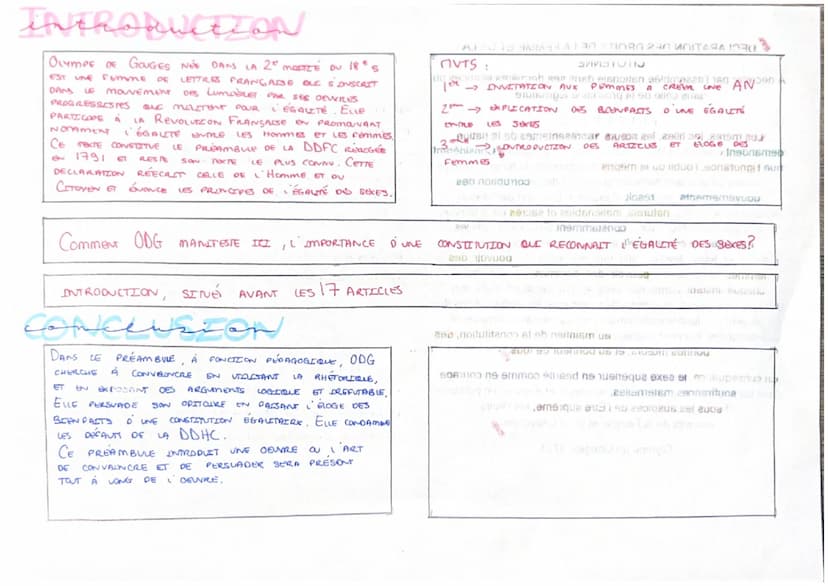 INTRODUCTION
introduction
OLYMPE DE GOUGES NÉE DANS LA 2e MOITIÉ DU 18e S
EST UNE FEMME DE LETTRES FRANÇAISE QUI S'INSCRIT
DANS LE MOUVEMENT DES LUMIÈRES PAR SES OEUVRES
PROGRESSISTES QUI MILITENT POUR L'ÉGALITÉ. ELLE
PARTICIPE À LA REVOLUTION FRANÇAISE EN PROMOUVANT
NOTAMMENT L'ÉGALITÉ ENTRE LES HOMMES ET LES FEMMES.
CE TEXTE CONSTITUE LE PRÉAMBULE DE LA DDFC REDIGÉE
EN 1791 ET RESTE SON TEXTE LE PLUS CONNU. CETTE
DECLARATION RÉÉCRIT CELLE DE L'HOMME ET DU
CITOYEN ET ÉNONCE LES PRINCIPES DE L'ÉGALITÉ DES SEXES.
MVTS :
1er → INVITATION AUX FEMMES A CRÉER UNE AN
2ème → EXPLICATION DES BIENFAITS D'UNE ÉGALITÉ
ENTRE LES SEXES
3ème → INTRODUCTION DES ARTICLES ET ÉLOGE DES
FEMMES
COMMENT ODG MANIFESTE ICI, L'IMPORTANCE D'UNE CONSTITUTION QUI RECONNAIT L'ÉGALITÉ DES SEXES?
INTRODUCTION, SITUÉ AVANT LES 17 ARTICLES
CONCLUSION
conclusion
DANS LE PRÉAMBULE, À FONCTION PÉDAGOGIQUE, ODG
CHERCHE À CONVAINCRE EN UTILISANT LA RHÉTORIQUE,
ET EN EXPOSANT DES ARGUMENTS LOGIQUE ET IRRÉFUTABLE.
ELLE PERSUADE SON EN FAISANT L'ÉLOGE DES
BIENFAITS D'UNE CONSTITUTION ÉGALITAIRE. ELLE CONDAMNE
LES DÉFAUTS DE LA DDHC.
CE PRÉAMBULE INTRODUIT UNE OEUVRE OU L'ART
DE CONVAINCRE ET DE PERSUADER SERA PRÉSENT
TOUT À LONG DE L'OEUVRE.